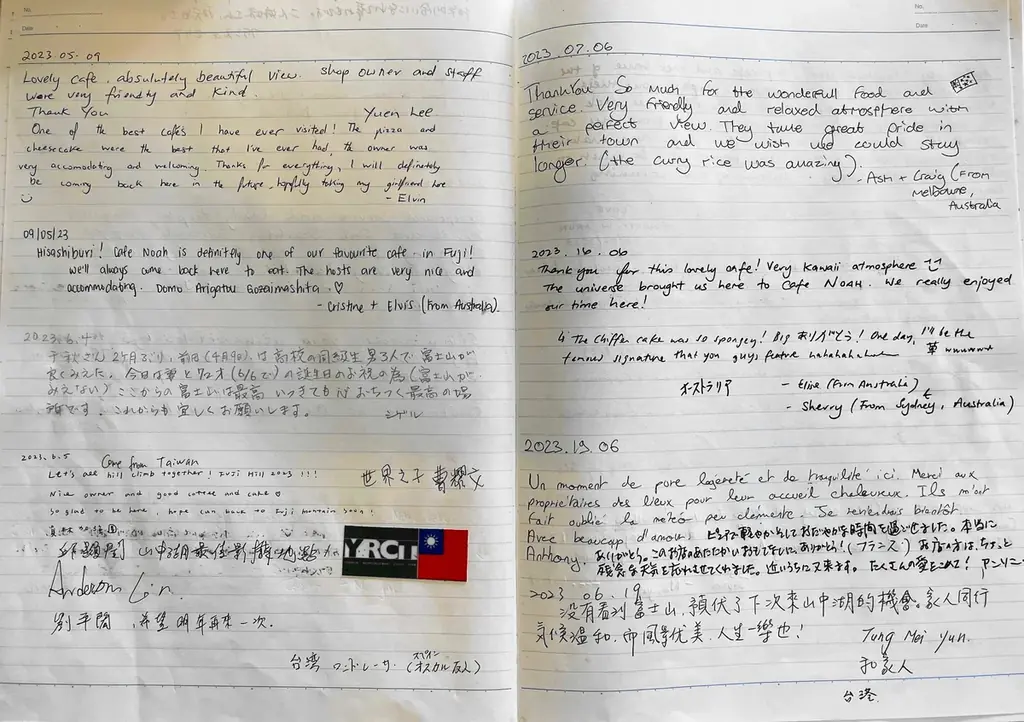 No.
Date
2023.05.09
Lovely Cafe. absulutely beautiful view. shop owner and staff
were very friendly and kind.
Thank You Yuen Lee
One of the best cafés I have ever visited! The pizza and
cheesecake were the best that I've ever had the owner was
very accomodating and welcoming. Thanks for everything, I will definately
be coming back here in the future, hopfully taking my girlfriend here
- Elvin
09/05/23
Hisashiburi! Cafe Noah is definitely one of our favourite cafe in Fuji!
We'll always come back here to eat. The hosts are very nice and
accommodating. Domo Arigatou Gozaimashita. ♡
- Cristine + Elvis (from Australia)
2023.6.4
千秋さん 2ケ月ぶり、前回(4月9日)は高校の同級生男3人で富士山が
良くみえた。今日は妻と72才(6/6で)の誕生日のお祝の為(富士山が
みえない) ここからの富士山は最高 いつきても おちつく最高の場
所です。これからも宜しくお願いします。 シゲル
2023.6.5 Come from Taiwan
Let's all hill climb together! Fuji Hill 2023 !!!
Nice owner and good coffee and cake
So glad to be here, hope can back to Fuji mountain soon!
世界之子 曹耀文
山中湖最佳
YARCH
Anderson Lin
別平閣, 希望明年再來一次.
台湾 ロードレーサー (オスカル友人)
スペイン
No.
Date
2023.07.06
Thankyou So much for the wonderfull food and
service. Very friendly and relaxed atmosphere with
a perfect view. They take great pride in
their town and we wish we could stay
longer. (the curry rice was amazing).
- Ash + Craig (From
Melbourne,
Australia
2023.16.06
Thank you for this lovely cafe! Very kawaii atmosphere
The universe brought us here to Cafe NOAH. We really enjoyed
our time here!
The Chiffon cake was so spongey! Big ありがとう! One day, I'll be the
famous signature that you guys feature hahahahahah 草 wwwwww
オーストラリア - Elise (From Australia)
- Sherry (From Sydney, Australia)
2023.19.06
Un moment de pure légèreté et de tranquilité ici. Merci aux
propriétaires des lieux pour leur accueil chaleureux. Ils m'ont
fait oublié la météo peu clémente. Je reviendrais bientôt.
Avec beaucoup d'amour, ピュアで軽やか、そしておだやかな時間を過ごせました。本当に
Anthony. ありがとう。このお店のあたたかいおもてなしに、ありがとう! (フランス) お店の方は、ちょっと
残念な天気を忘れさせてくれました。近いうちに又来ます。たくさんの愛をこめて! アンソニー
2023.06.19
没有看到富士山, 預伏了下次來山中湖的機會。家人同行
気候温和, 而風景优美, 人生一樂也!
Tung Mei Yun.
和家人
台灣